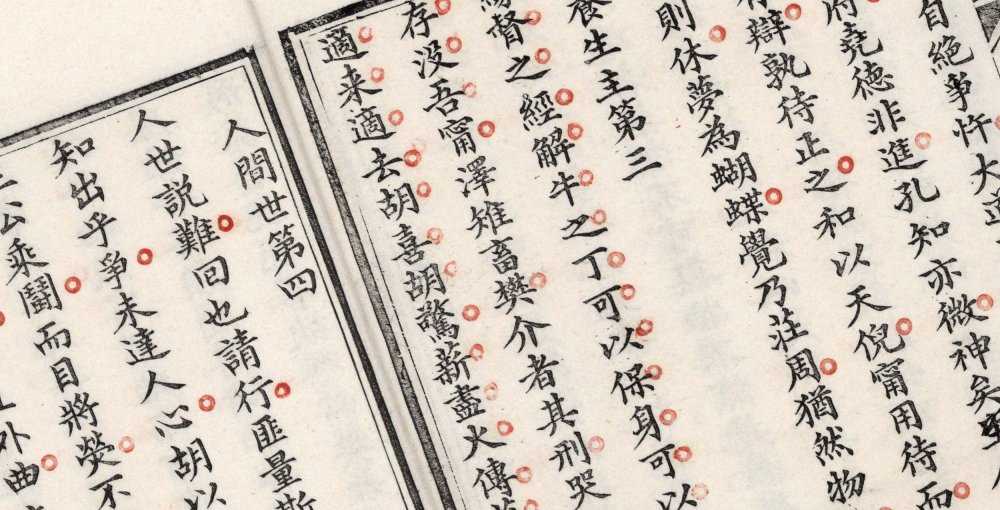 自絶爭忤大
府堯德非進孔知亦微神矣
有辯孰待正之和以天倪甯用待而
則休夢為蝴蝶覺乃莊周猶然物
養生主第三
督之經解牛之丁可以保身可以
存没吾甯澤雉畜樊介者其刑哭
適来適去胡喜胡驚薪盡火傳
人間世第四
人世説難回也請行匪量斯
知出乎爭未達人心胡以
公乘鬪而目將熒不
外曲